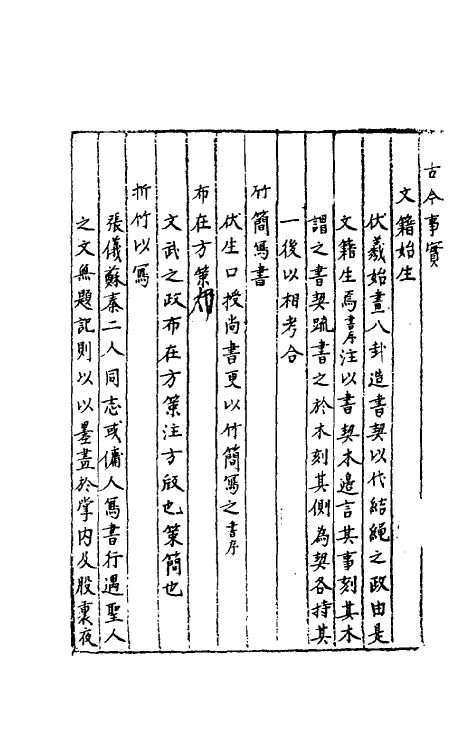 古今事實
文籍始生
伏羲始畫八卦造書契以代結繩之政由是
文籍生焉書序注以書契木邉言其事刻其木
謂之書契䟽書之於木刻其側為契各持其
一後以相考合
竹簡寫書
伏生口授尚書更以竹簡寫之書序
布在方策
文武之政布在方策注方版也策簡也
折竹以寫
張儀蘇秦二人同志或傭人寫書行遇聖人
之文無題記則以以墨畫於掌内及股裏夜